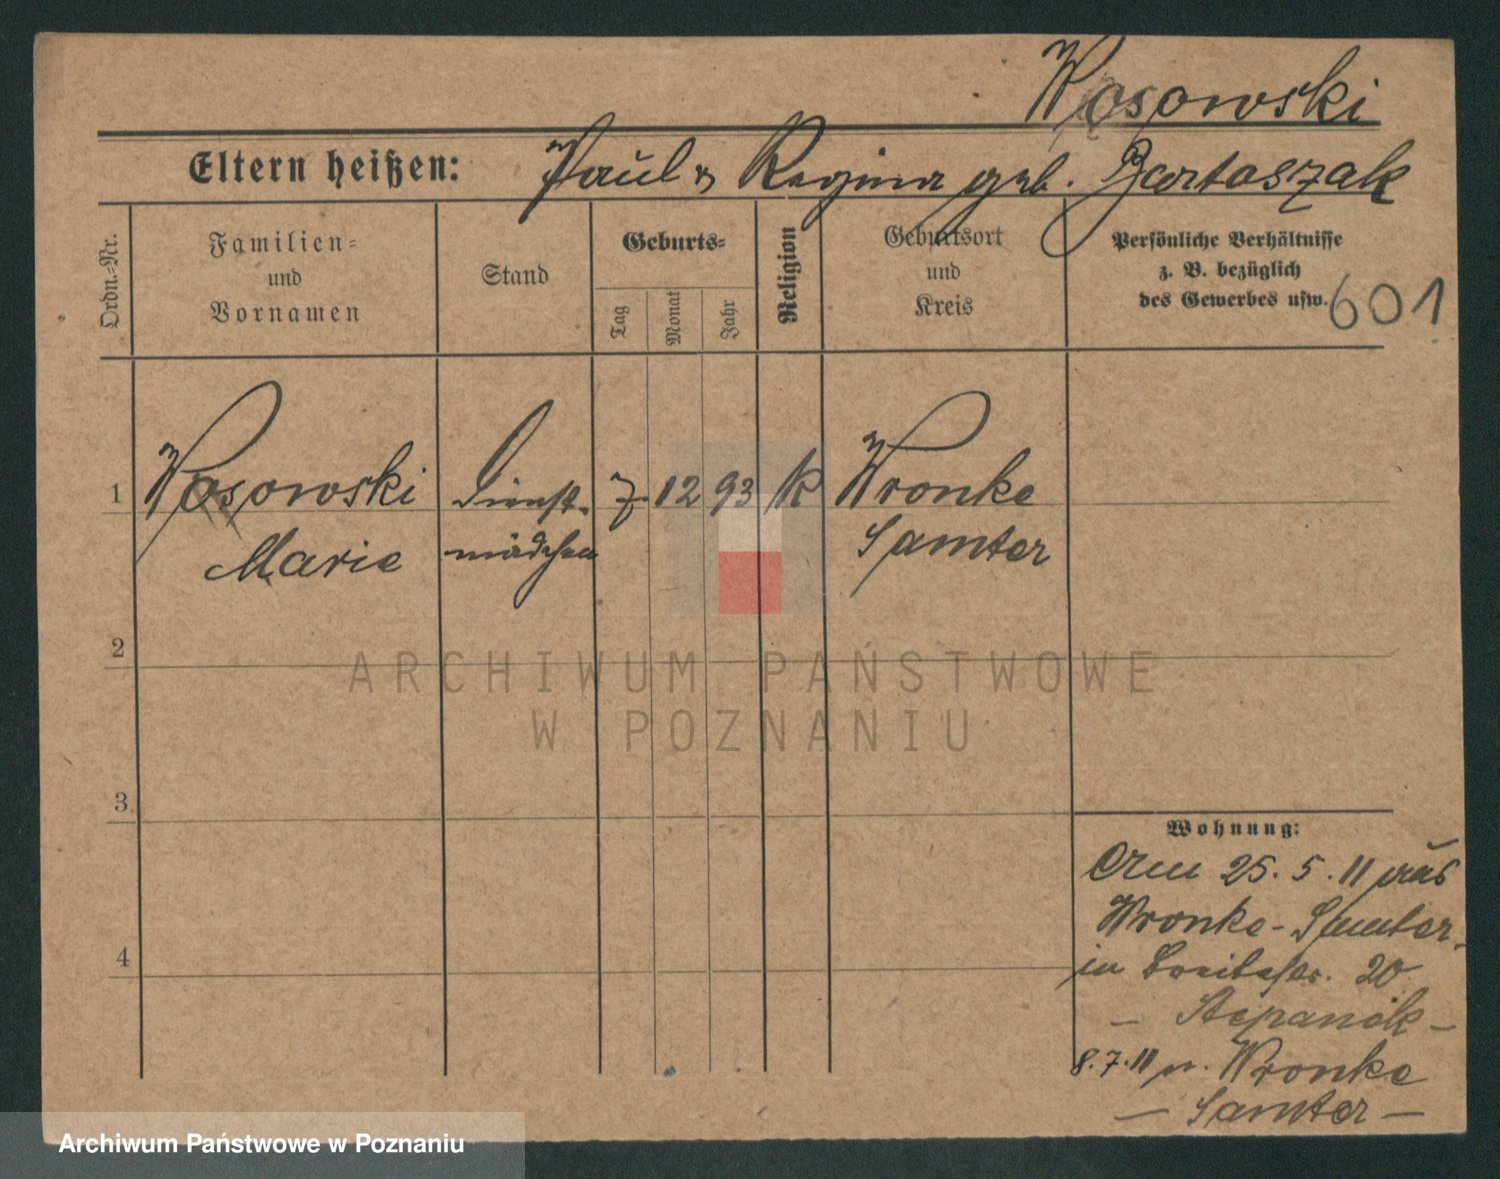 Wosowski
Eltern heißen: Paul u Regina geb. Bartoszak
Ordn.-Nr.
Familien-
und
Vornamen
Stand
Geburts-
Tag
Monat
Jahr
Religion
Geburtsort
und
Kreis
Persönliche Verhältnisse
z. B. bezüglich
des Gewerbes usw.
601
1 Wosowski Dienst- 7 12 93 K Wronke
Marie mädchen Samter
2
ARCHIWUM PAŃSTWOWE
W POZNANIU
3
Wohnung:
25. 5. 11 aus
Wronke - Samter
in Breitestr. 20
4
8.7.11 n. Wronke
— Samter —
Archiwum Państwowe w Poznaniu